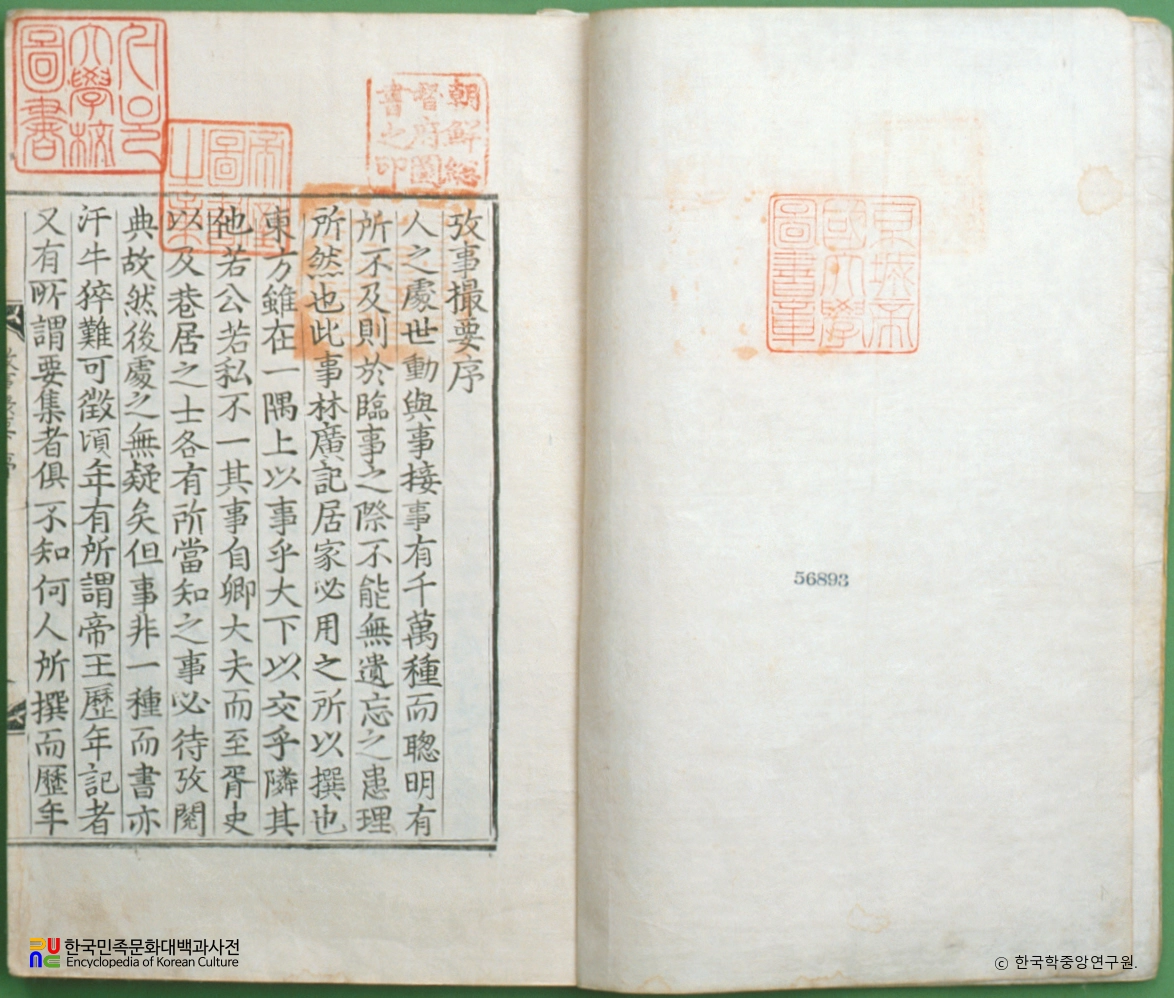 京城帝國大學圖書章
56893
朝鮮總督府圖書之印
帝室圖書之章
서울大學校圖書
攷事撮要序
人之處世動與事接事有千萬種而聰明有
所不及則於臨事之際不能無遺忘之患理
所然也此事林廣記居家必用之所以撰也
東方雖在一隅上以事乎大下以交乎隣其
他若公若私不一其事自卿大夫而至胥史
以及巷居之士各有所當知之事必待攷閱
典故然後處之無疑矣但事非一種而書亦
汗牛猝難可徵頃年有所謂帝王歷年記者
又有所謂要集者俱不知何人所撰而歷年
한국민족문화대백과사전
Encyclopedia of Korean Culture
ⓒ 한국학중앙연구원.